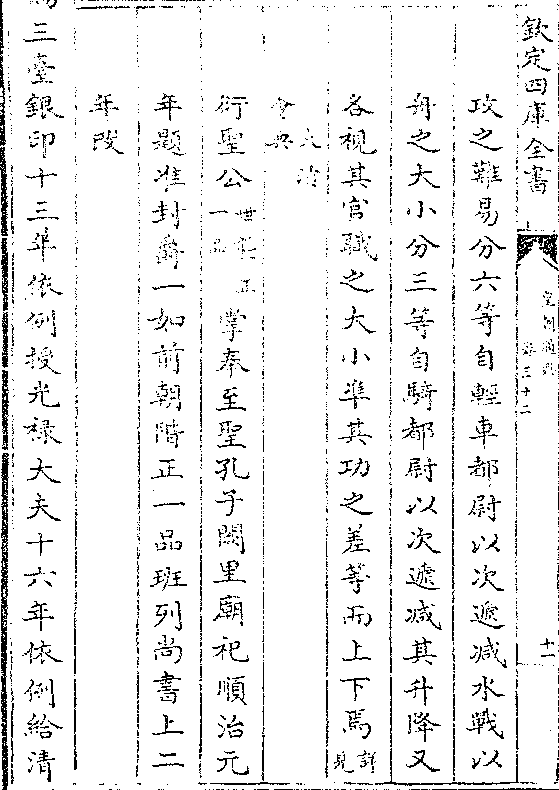 欽定四庫全書
皇朝通典
卷三十二
十一
攻之難易分六等自輕車都尉以次遞減水戰以
舟之大小分三等自騎都尉以次遞減其升降又
各視其官職之大小準其功之差等而上下焉詳見
大清會典
衍聖公世襲正一品掌奉至聖孔子闕里廟祀順治元
年題准封爵一如前朝階正一品班列尚書上二
年改
三臺銀印十三年依例授光祿大夫十六年依例給清